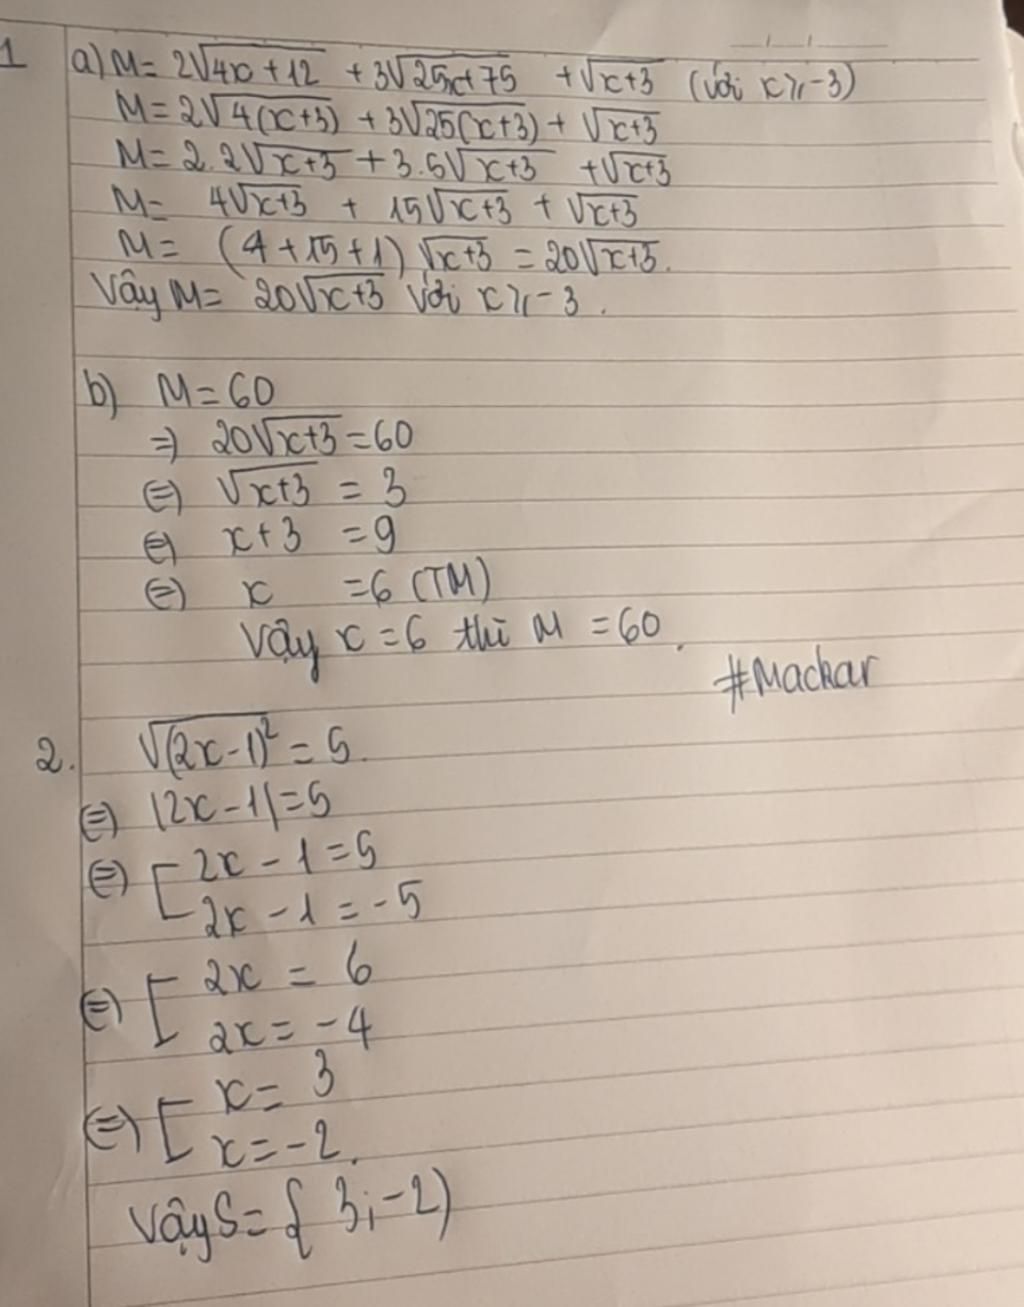 1 a) M = 2√(4x+12) + 3√(25x+75) + √(x+3) (với x ≥ -3)
M = 2√(4(x+3)) + 3√(25(x+3)) + √(x+3)
M = 2.2√(x+3) + 3.5√(x+3) + √(x+3)
M = 4√(x+3) + 15√(x+3) + √(x+3)
M = (4+15+1)√(x+3) = 20√(x+3).
Vậy M = 20√(x+3) với x ≥ -3.
b) M = 60
⇒ 20√(x+3) = 60
⇔ √(x+3) = 3
⇔ x+3 = 9
⇔ x = 6 (TM)
Vậy x = 6 thì M = 60.
#Mackar
2. √((2x-1)²) = 5.
⇔ |2x-1| = 5
⇔ [ 2x - 1 = 5
2x - 1 = -5
⇔ [ 2x = 6
2x = -4
⇔ [ x = 3
x = -2.
Vậy S = { 3; -2)